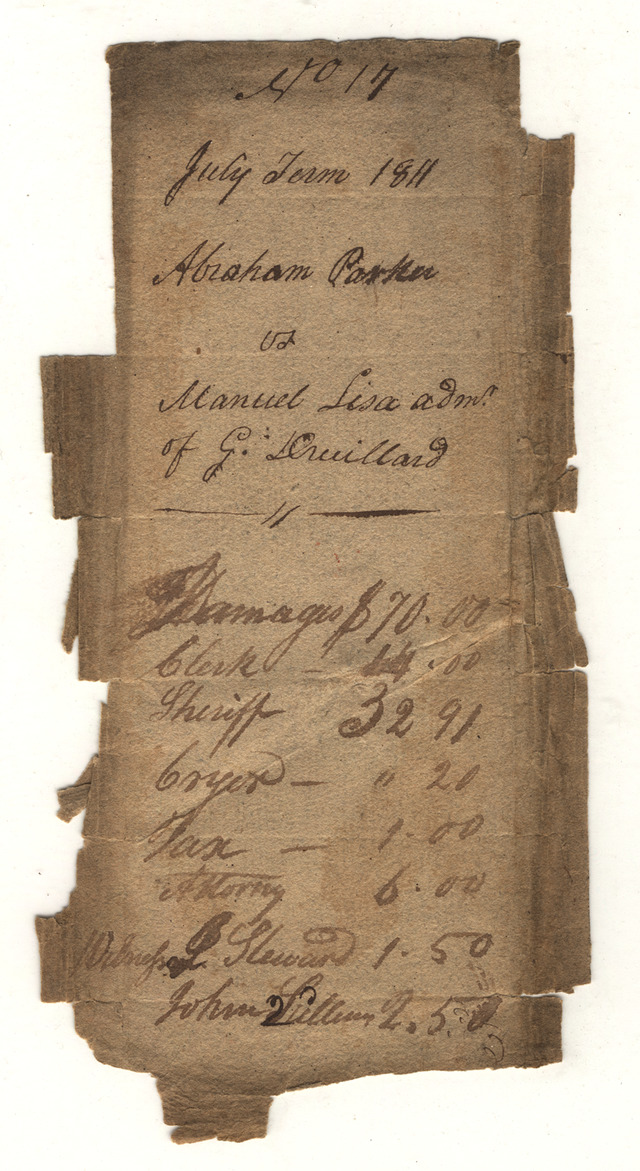 No 17
July Term 1811
Abraham Parker
vs
Manuel Lisa admr
of G. Druillard
Damages $70.00
Clerk — 14.00
Sheriff 32 91
Cryer — " 20
Tax — 1.00
Attorny 6.00
Witness Steward 1.50
John 2.50